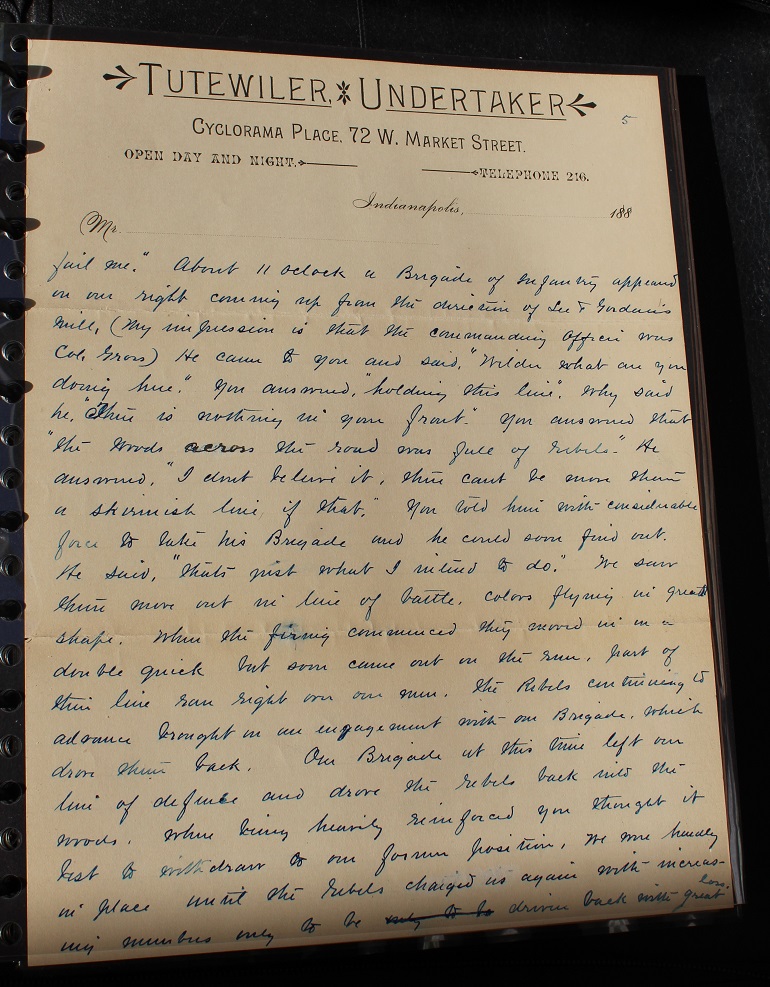 TUTEWILER, UNDERTAKER
5
CYCLORAMA PLACE, 72 W. MARKET STREET.
OPEN DAY AND NIGHT. TELEPHONE 216.
Indianapolis, 188
Mr.
fail me." About 11 oclock a Brigade of Infantry appeared
on our right coming up from the direction of Lee & Gordan's
Mill, (My impression is that the commanding Officer was
Col. Gross) He came to you and said, "Wilder what are you
doing here." You answered, "holding this line". Why said
he, "There is nothing in your front." You answered that
"the woods across the road was full of rebels." He
answered, "I dont believe it, there cant be more than
a skirmish line, if that." You told him with considerable
force to take his Brigade and he could soon find out.
He said, "thats just what I intend to do." We saw
them move out in line of battle, colors flying in great
shape. When the firing commenced they moved in in a
double quick but soon came out on the run, part of
their line ran right over our men. The Rebels continuing to
advance brought on an engagement with our Brigade, which
drove them back. Our Brigade at this time left our
line of defense and drove the rebels back into the
woods. When being heavily reinforced you thought it
best to withdraw to our former position, We were hardly
in place until the rebels charged us again with increas-
ing numbers only to be only to be driven back with great loss.